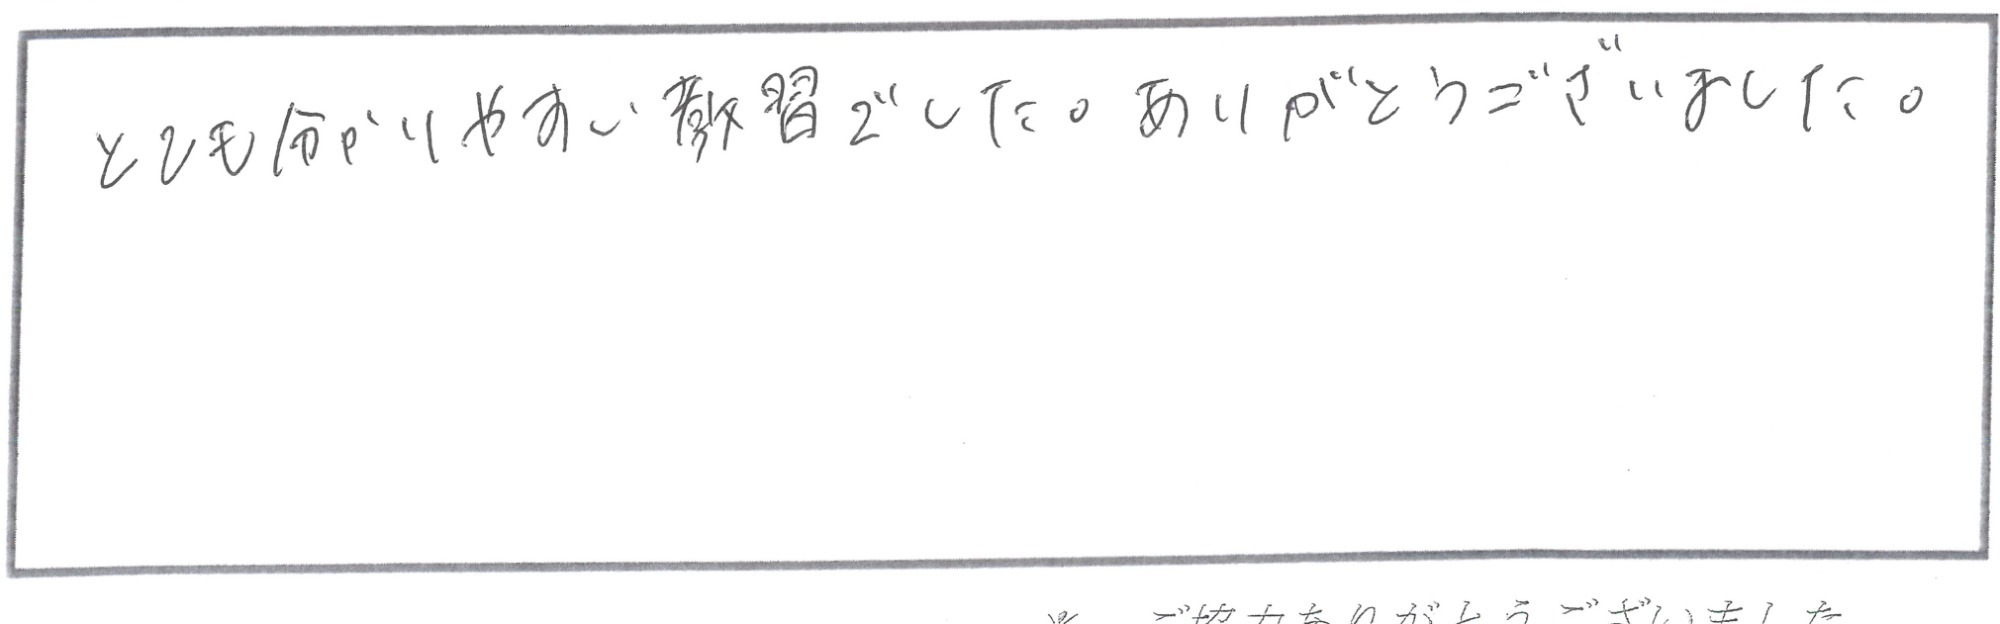 とても分かりやすい教習でした。ありがとうございました。
※ ご協力ありがとうございました